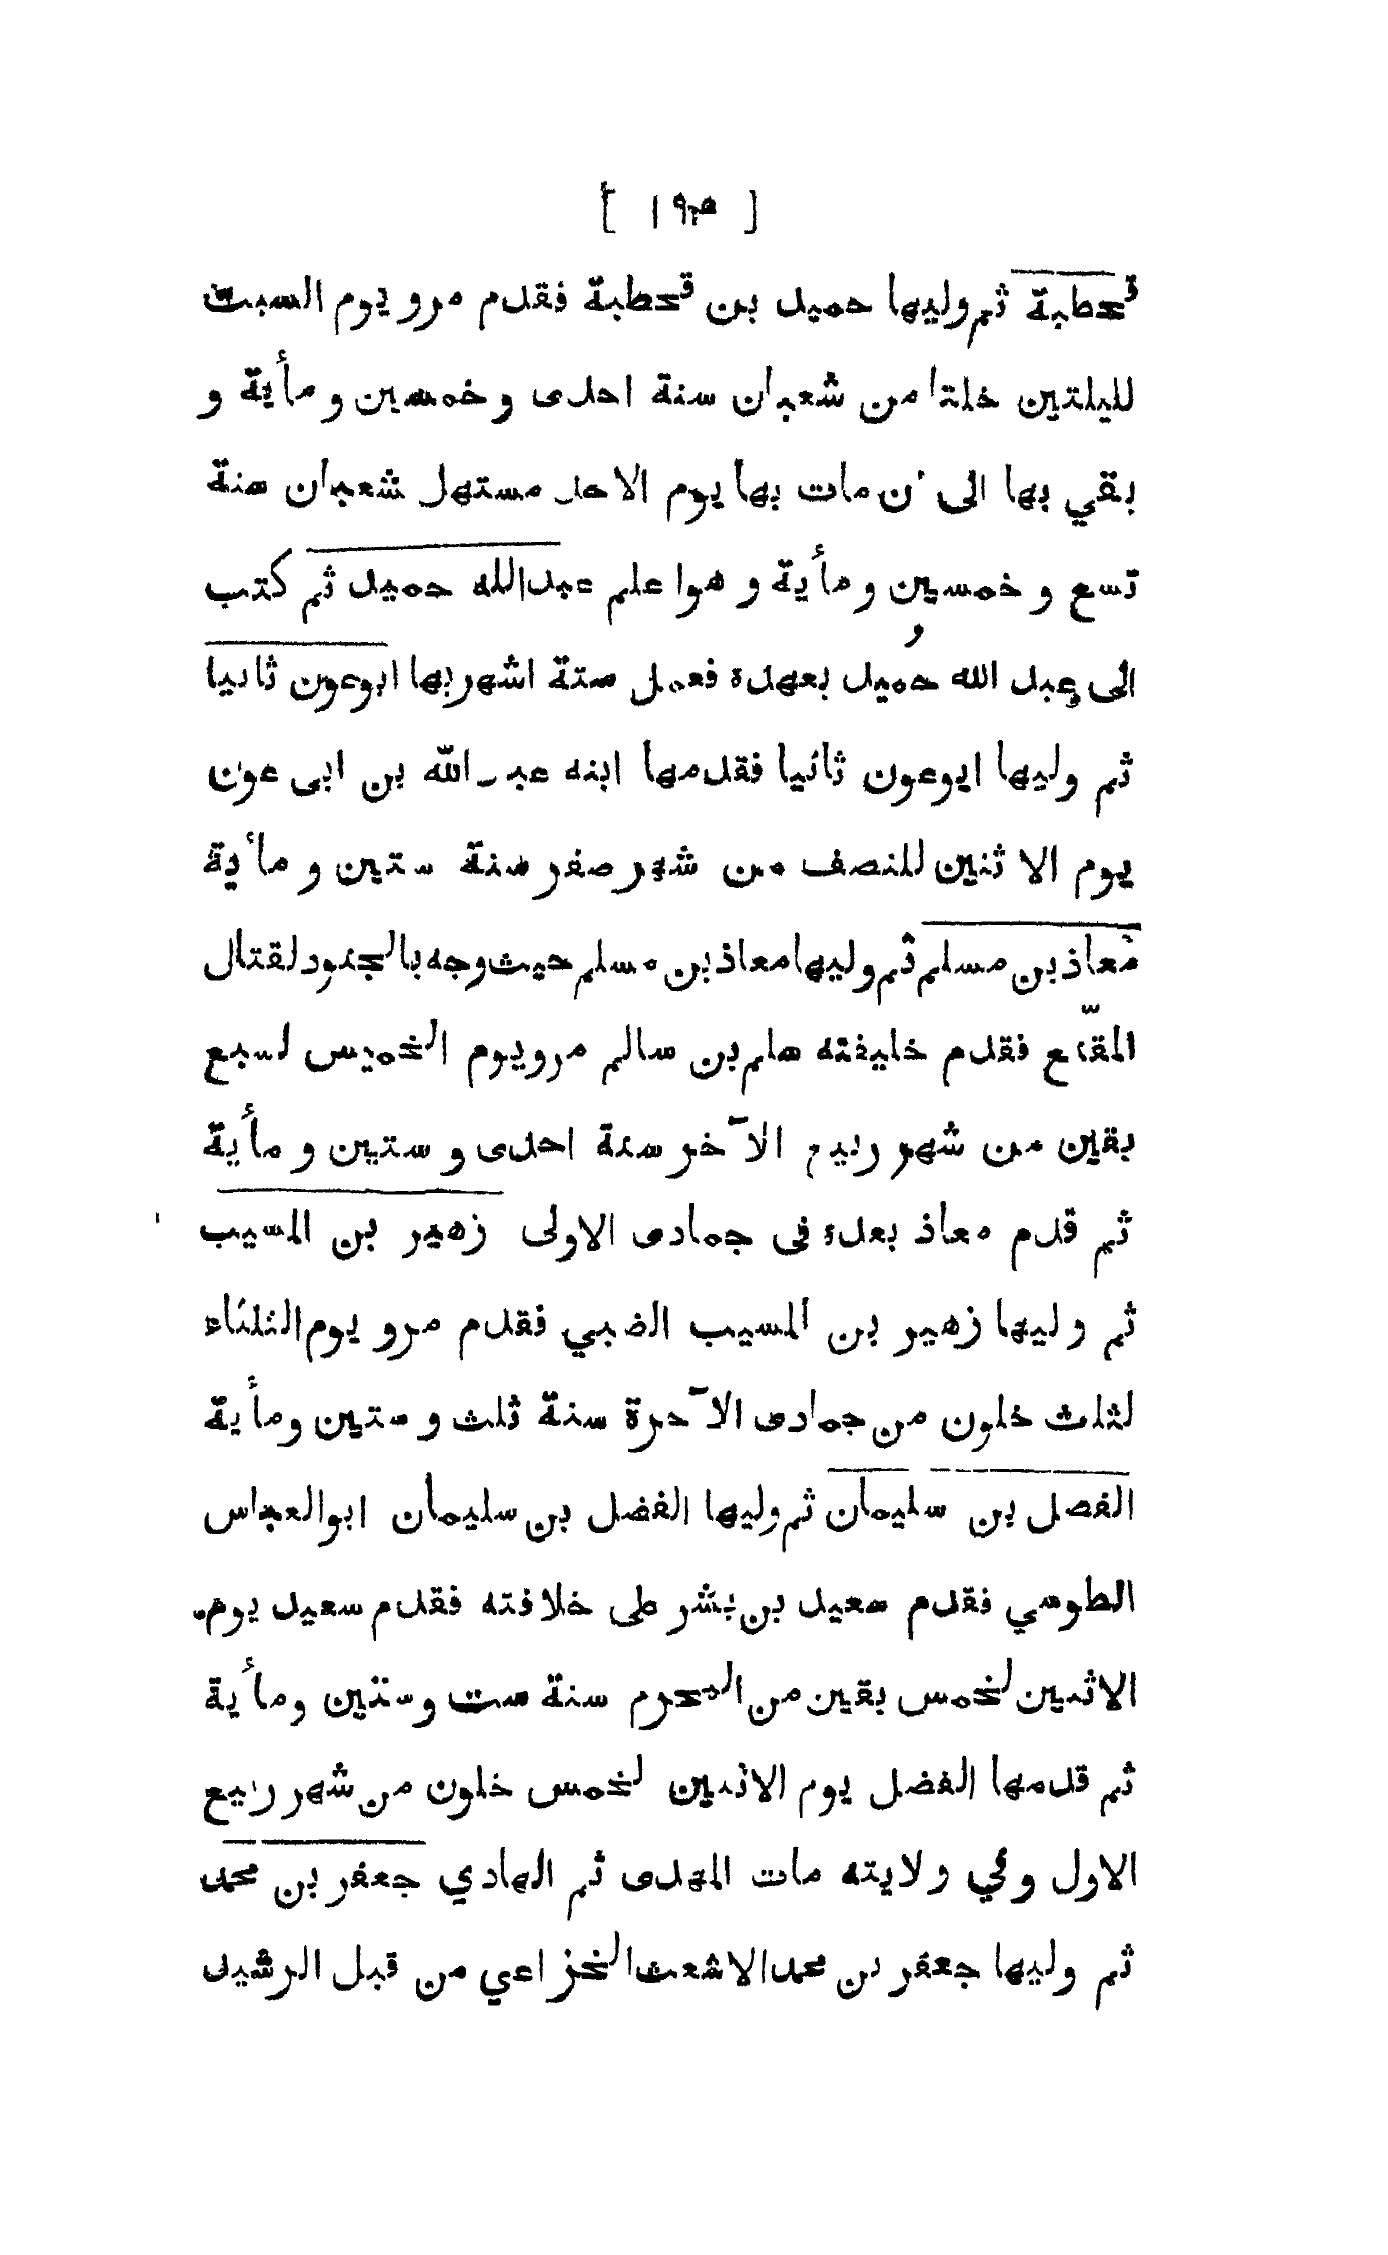 [ ١٩٣ ]
قحطبة ثم وليها حميد بن قحطبة فقدم مرو يوم السبت
لليلتين خلتا من شعبان سنة احدى و خمسين و مأية و
بقي بها الى ن مات بها يوم الاحد مستهل شعبان سنة
تسع و خمسين و مأية و هوا علم عبدالله حميد ثم كتب
الى عبد الله حميد بعهده فعمل ستة اشهر بها ابوعون ثانيا
ثم وليها ايوعون ثانيا فقدمها ابنه عبد الله بن ابى عون
يوم الاثنين للنصف من شهر صفر سنة ستين و مأية
معاذ بن مسلم ثم وليها معاذ بن مسلم حيث وجه بالجنود لقتال
المقنّع فقدم خليفته هلم بن سالم مرويوم الخميس لسبع
بقين من شهر ربيع الآخر سنة احدى و ستين و مأية
ثم قدم معاذ بعده فى جمادى الاولى زهير بن المسيب
ثم وليها زهير بن المسيب الضبي فقدم مرو يوم الثلثاء
لثلث خلون من جمادى الآخرة سنة ثلث و ستين ومأية
الفصل بن سليمان ثم وليها الفضل بن سليمان ابوالعباس
الطوسي فقدم سعيد بن بشر على خلافته فقدم سعيد يوم
الاثنين لخمس بقين من المحرم سنة ست وستين ومأية
ثم قدمها الفضل يوم الاثنين لخمس خلون من شهر ربيع
الاول وفي ولايته مات المهدى ثم الهادي جعفر بن محمد
ثم وليها جعفر بن محمد الاشعث الخزاعي من قبل الرشيد